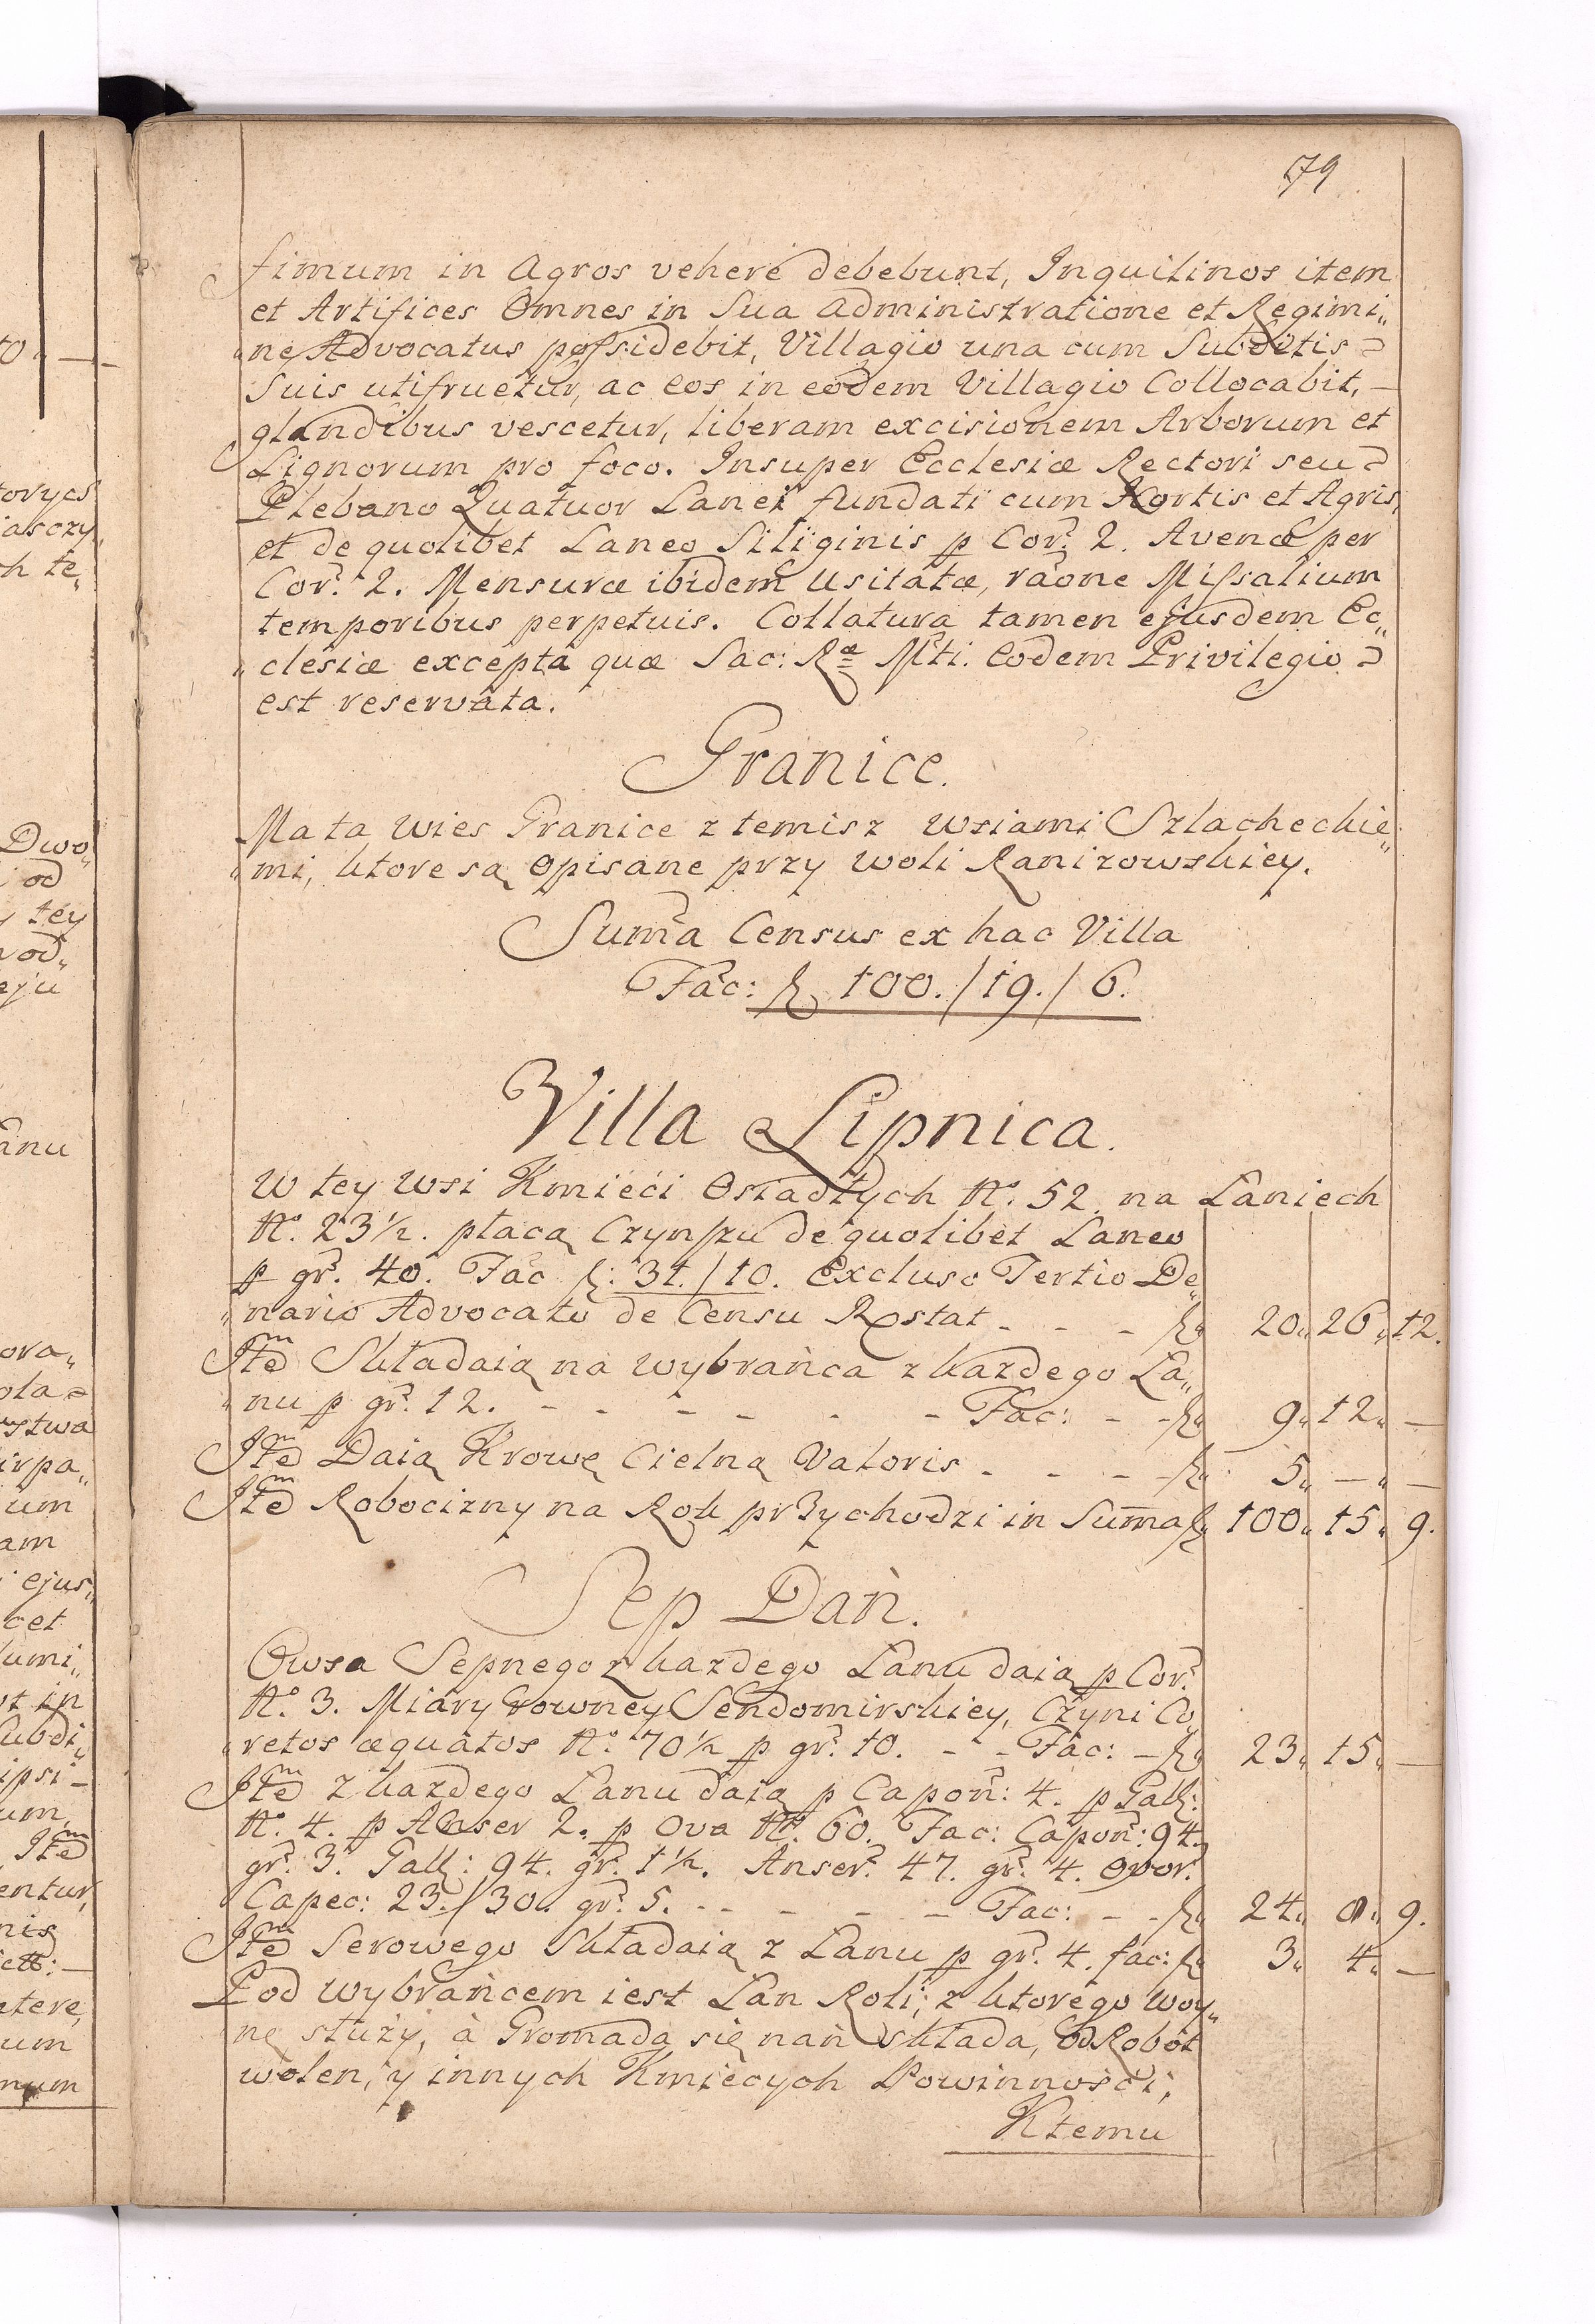 79
fimum in Agros vehere debebunt, Inquilinos item
et Artifices Omnes in Sua administratione et Regimi„
„ne Advocatus possidebit, Villagio una cum Subditis =
Suis utifruetur, ac eos in eodem Villagio Collocabit, —
glandibus vescetur, liberam excisionem Arborum et
Lignorum pro foco. Insuper Ecclesiæ Rectori seu =
Plebano Quatuor Lanei fundati cum Hortis et Agris,
et de quolibet Laneo Siliginis p Cor: 2. Avenæ per
Cor: 2. Mensuræ ibidem Usitatæ, raone Missalium
temporibus perpetuis. Collatura tamen ejusdem Ec„
„clesiæ excepta quæ Sac: Ræ Mti. Eodem Privilegio =
est reservata.
Granice.
Ma ta Wies Granice z temisz Wsiami Szlacheckie„
„mi, ktore są Opisane przy Woli Ranizowskiey.
Suma Census ex hac Villa
Fac: fl 100./19./6.
Villa Lipnica.
W tey Wsi Kmieci Osiadłych No. 52. na Łaniech
No. 23½. płacą Czynszu de quolibet Laneo
p gr. 40. Fac fl: 31./10. Excluso Tertio De„
„nario Advocato de Censu Restat - - - fl 20„ 26„ 12.
Item Składaią na wybrańca z każdego Ła„
„nu p gr. 12. - - - - - - Fac: - - fl 9„ 12„ —
Item Daią Krowę Cielną Valoris - - - - fl 5„ —„ —
Item Robocizny na Rok przychodzi in Suma fl 100„ 15„ 9.
Sep Dań.
Owsa Sepnego z każdego Łanu daią p Cor.
No. 3. Miary rowney Sendomirskiey, Czyni Co„
„retos æquatos No. 70½ p gr. 10. - - Fac: - fl 23„ 15„ —
Item z każdego Łanu daią p Capon: 4. p Gall:
No. 4. p Anser 2. p Ova No. 60. Fac: Capon: 94.
gr. 3. Gall: 94. gr. 1½. Anser. 47. gr. 4. Ovor.
Capec: 23./30. gr. 5. - - - - - Fac: - - fl 24„ 0„ 9.
Item Serowego Składaią z Łanu p gr. 4. fac: fl 3„ 4„ —
Pod wybrańcem iest Łan Roli, z ktorego Woy„
nę służy, à Gromada się nań składa, od Robot
wolen, y innych Kmiecych Powinności,
Ktemu